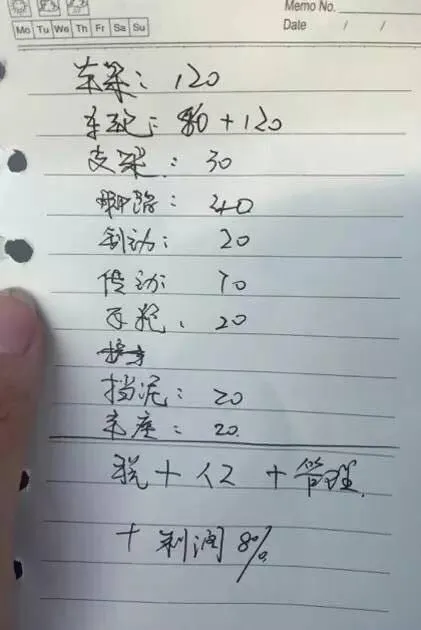 Memo No.
Mo Tu We Th Fr Sa Su
Date / /
车架: 120
车轮: +120
支架: 30
脚踏: 40
制动: 20
传动: 70
手把: 20
挡泥: 20
车座: 20
税+人工+管理
+利润8%